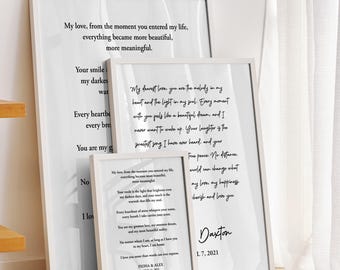 My love, from the moment you entered my life,
everything became more beautiful,
more meaningful.
Your smile
my darkes
wa
Every heartbe
every
You are my g
an
No
I lov
My dearest love, you are the melody in my
heart and the light in my soul. Every moment
with you feels like a beautiful dream, and I
never want to wake up. Your laughter is the
sweetest song I have ever heard, and your
true peace. No distance,
could can change what
my love, my happiness
cherish and love you
Daxton
1. 7. 2021
My love, from the moment you entered my life,
everything became more beautiful,
more meaningful.
Your smile is the light that brightens even
my darkest days, and your touch is the
warmth that fills my soul.
Every heartbeat of mine whispers your name,
every breath I take carries your scent.
You are my greatest love, my sweetest dream,
and my most beautiful reality.
No matter where I am, as long as I have you
in my heart, I am home.
I love you more than words can ever express.
FIONA & ALEX